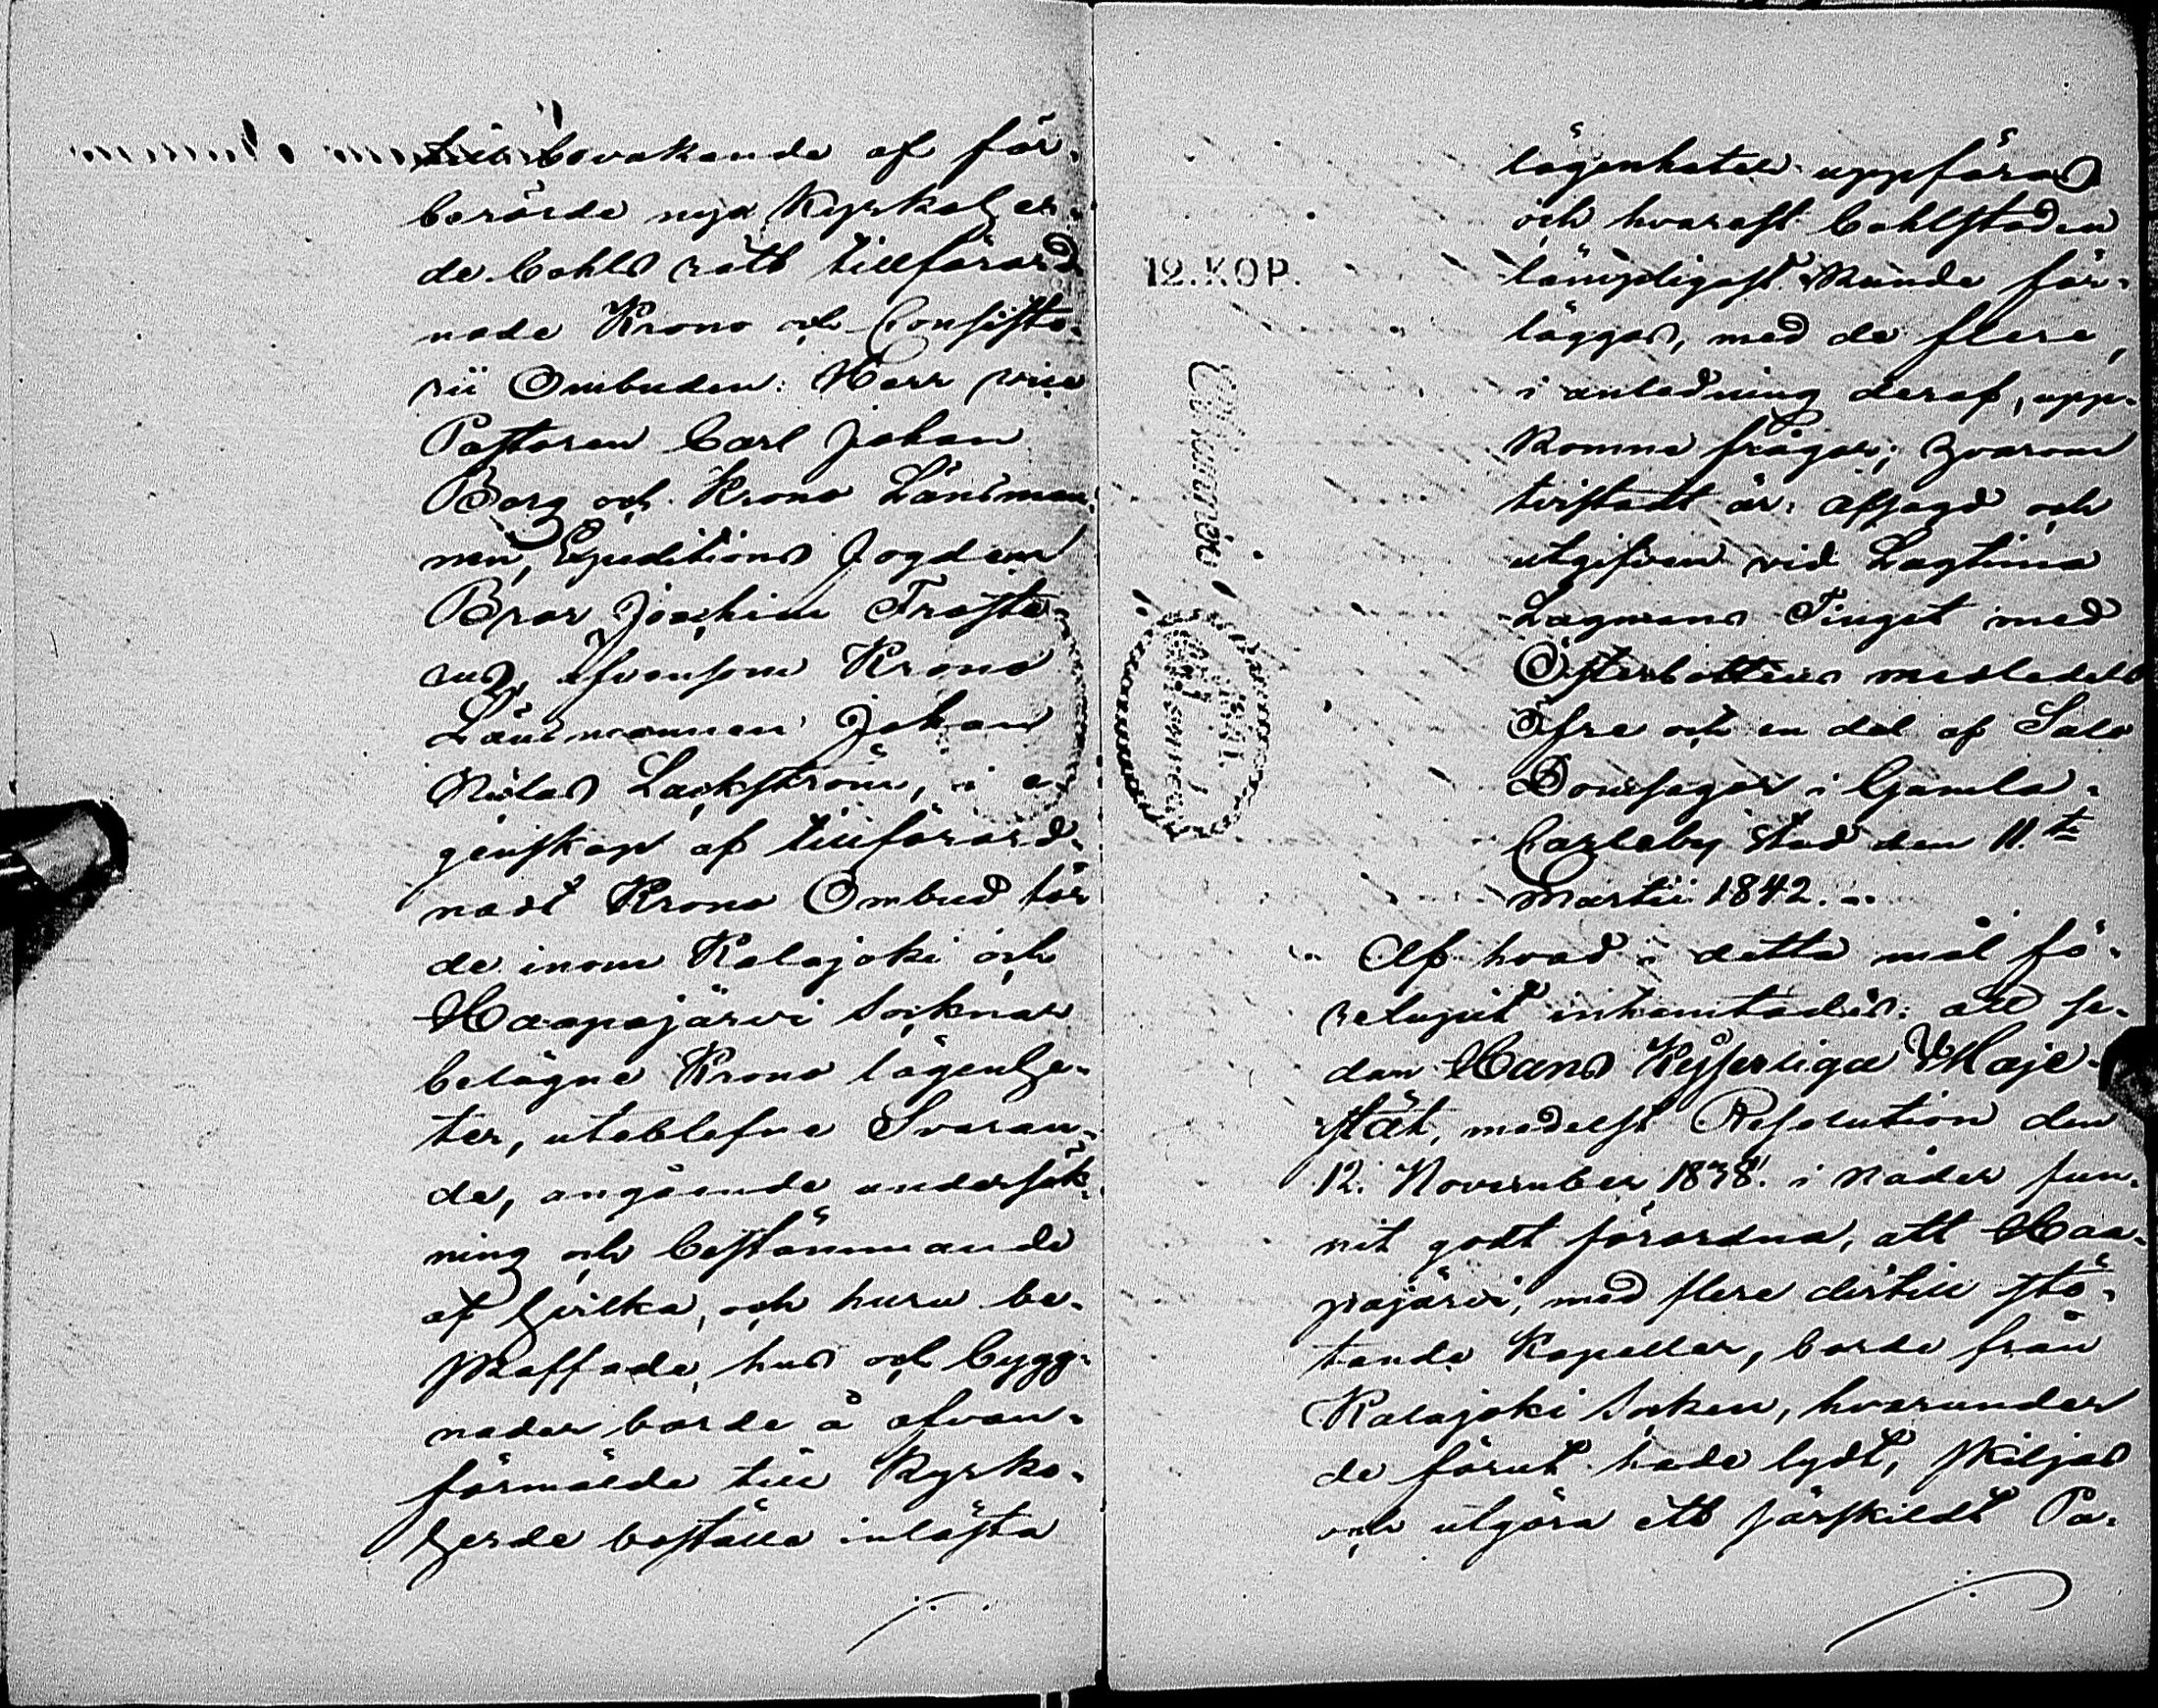 till bevakande af för-
berörde nya Kyrkoher-
de bohls rätt tillförord-
nade Krono och Consisto-
rii Ombuden: Herr vice
Pastoren Carl Johan
Borg och Krono Länsman-
nen, Expeditions Fogden
Bror Joachim Froste-
rus, äfvensom Krono
Länsmannen Johan
Niclas Lackström, i e-
genskap af tillförord-
nadt Krono Ombud för
de inom Kalajoki och
Haapajärvi Socknar
belägne Krono lägenhe-
ter, uteblefne Svaran-
de, angående undersök-
ning och bestämmande
af hvilka, och huru be-
skaffade, hus och bygg-
nader borde å ofvan-
förmälde till Kyrko-
herde boställe inlösta
12. KOP.
lägenheten uppföras
och hvarest bohlstaden
lämpligast kunde för-
läggas, med de flere,
i anledning deraf, upp-
komne frågor; hvarom
tvistadt är: afsagd och
utgifven vid Lagtima
Lagmans Tinget med
Österbottens medledels
Öfre och en del af Salo
Domsagor i Gamla-
Carleby stad den 11.te
Martii 1842.
Af hvad i detta mål fö-
relupit inhemtades: att se-
dan Hans Kejserliga Maje-
stät, medelst Resolution den
12. November 1838. i nåder fun-
nit godt förordna, att Haa-
pajärvi, med flere dertill stö-
tande Kapeller, borde från
Kalajoki Socken, hvarunder
de förut hade lydt, skiljas
och utgöra ett särskildt Pa-